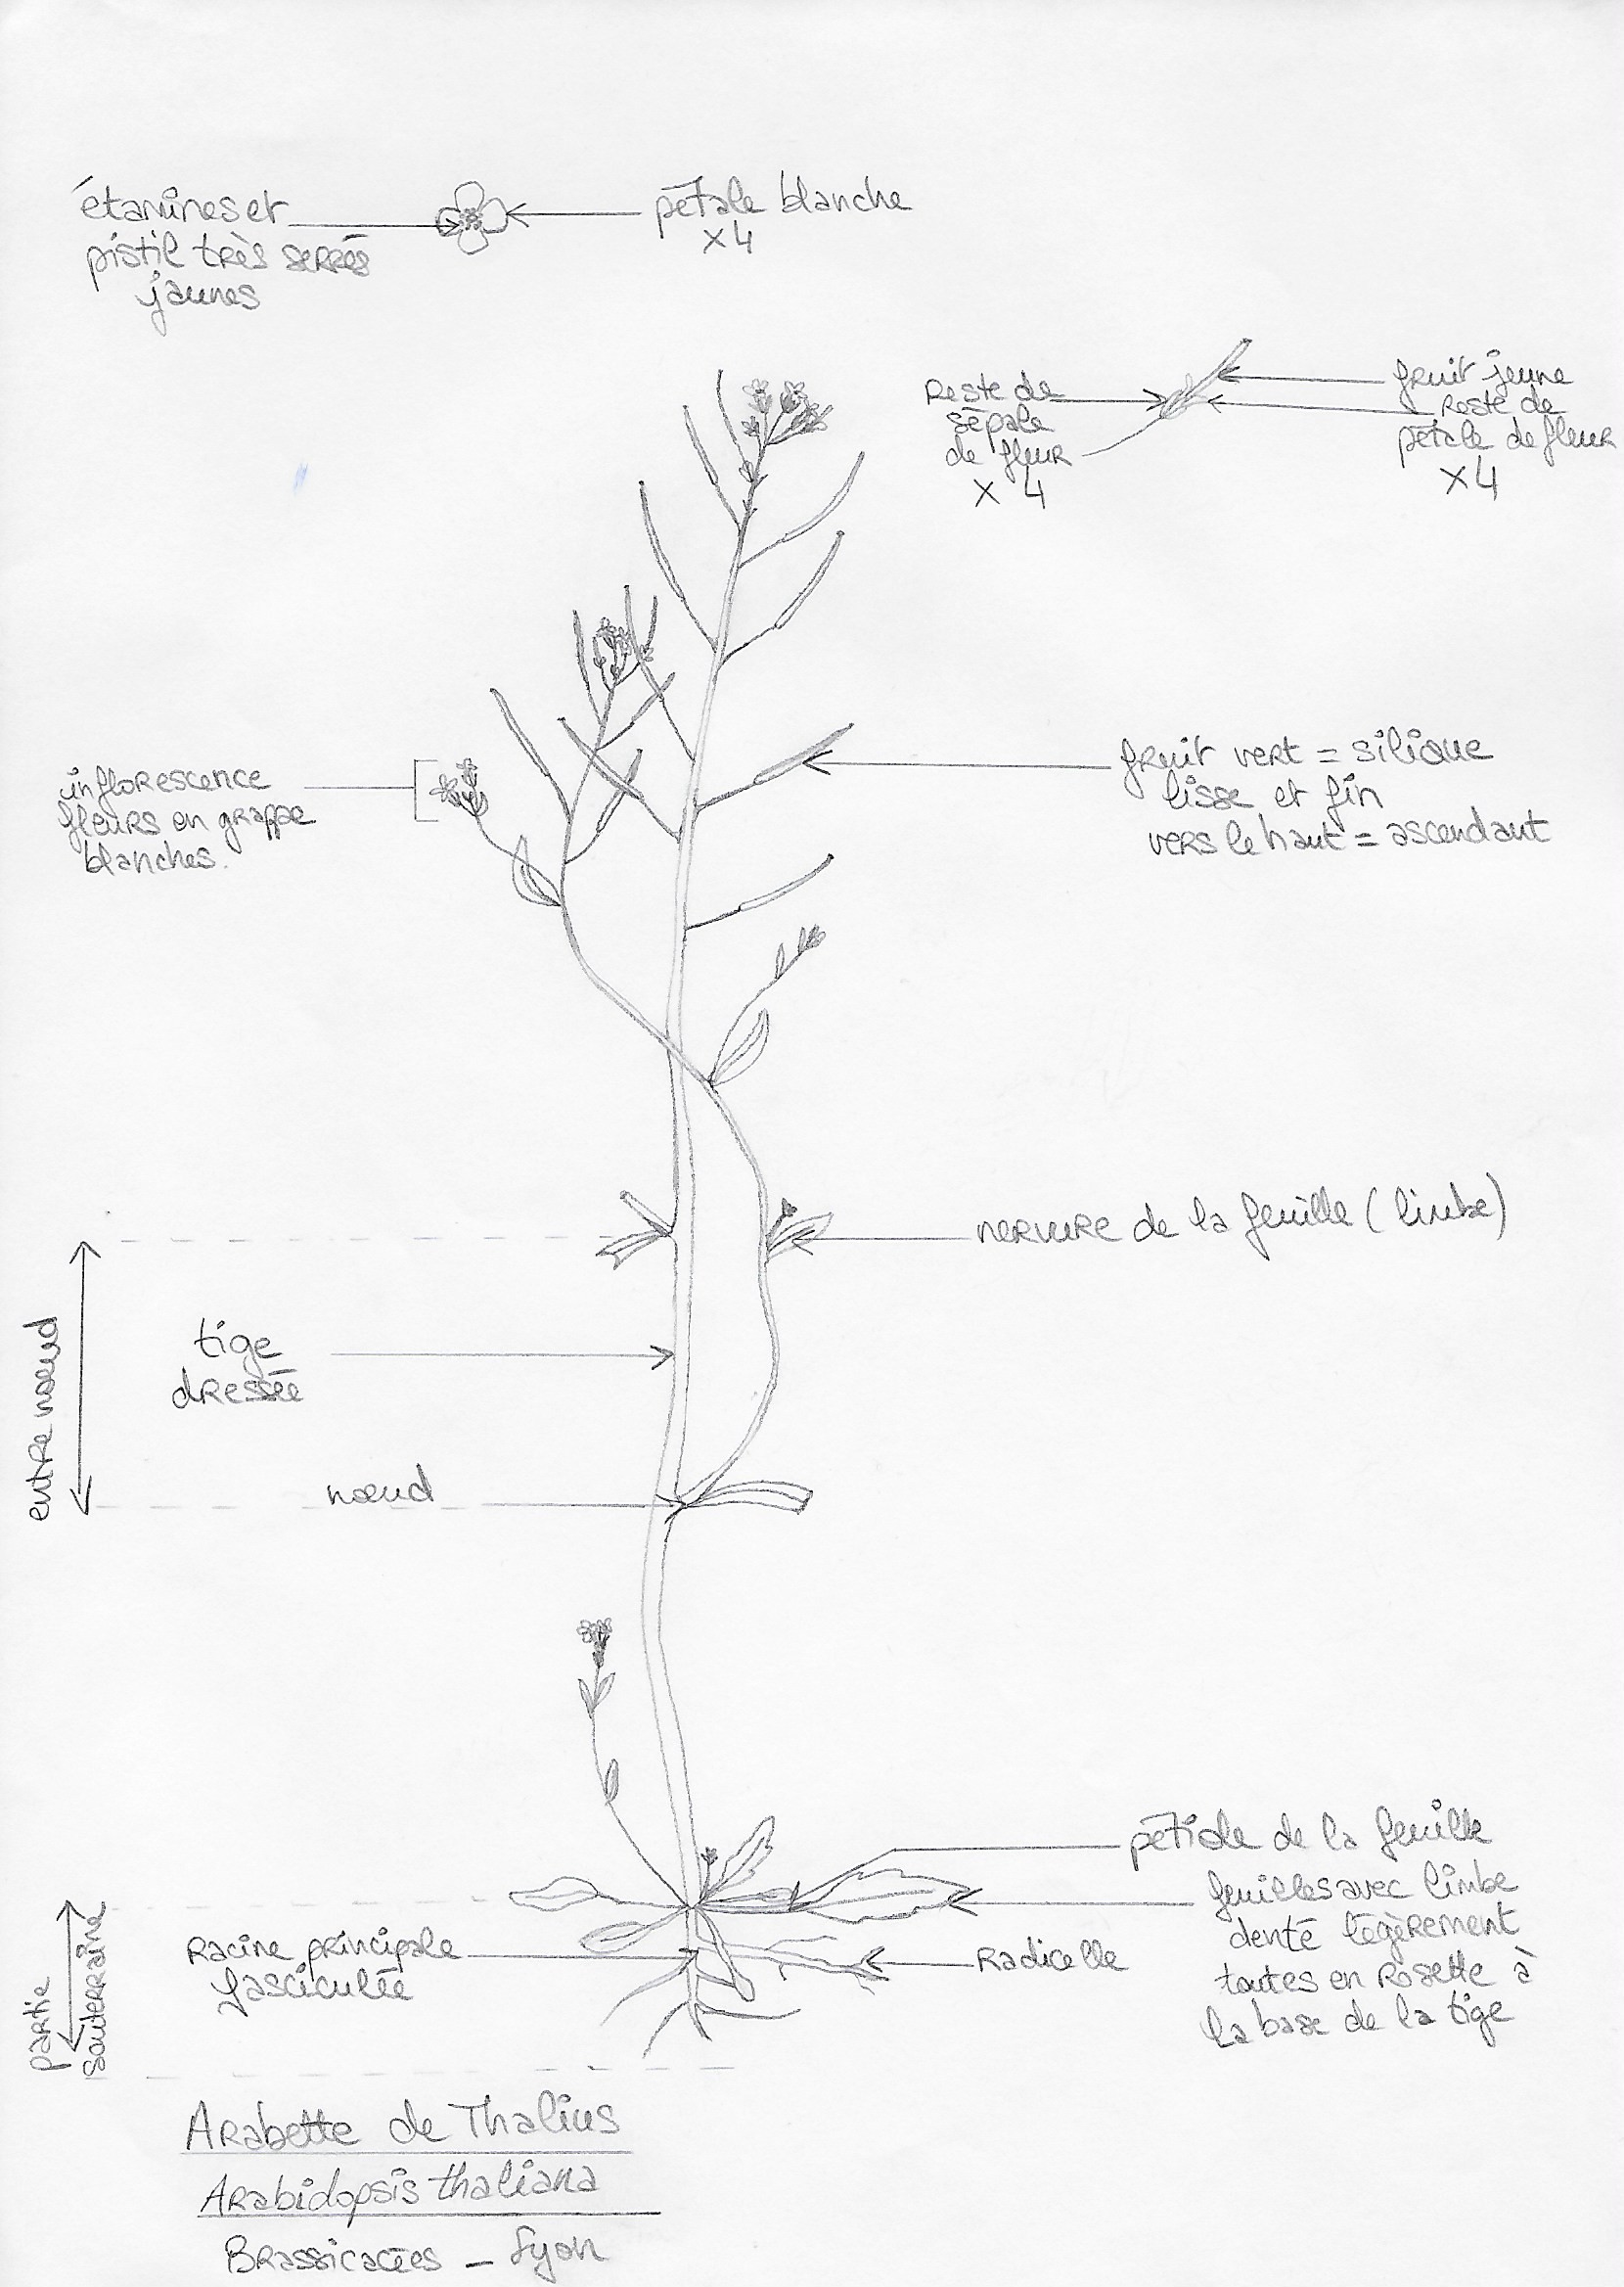 étamines et
pistil très serrés
jaunes
pétale blanche
x4
Reste de
sépale
de fleur
x 4
fruit jeune
Reste de
pétale de fleur
x4
inflorescence
fleurs en grappe
blanches.
fruit vert = silique
lisse et fin
vers le haut = ascendant
nervure de la feuille (limbe)
entre noeud
tige
dressée
nœud
pétiole de la feuille
feuilles avec limbe
denté légèrement
toutes en rosette à
la base de la tige
partie
souterraine
Racine principale
fasciculée
Radicelle
Arabette de Thalius
Arabidopsis thaliana
Brassicacées - Lyon